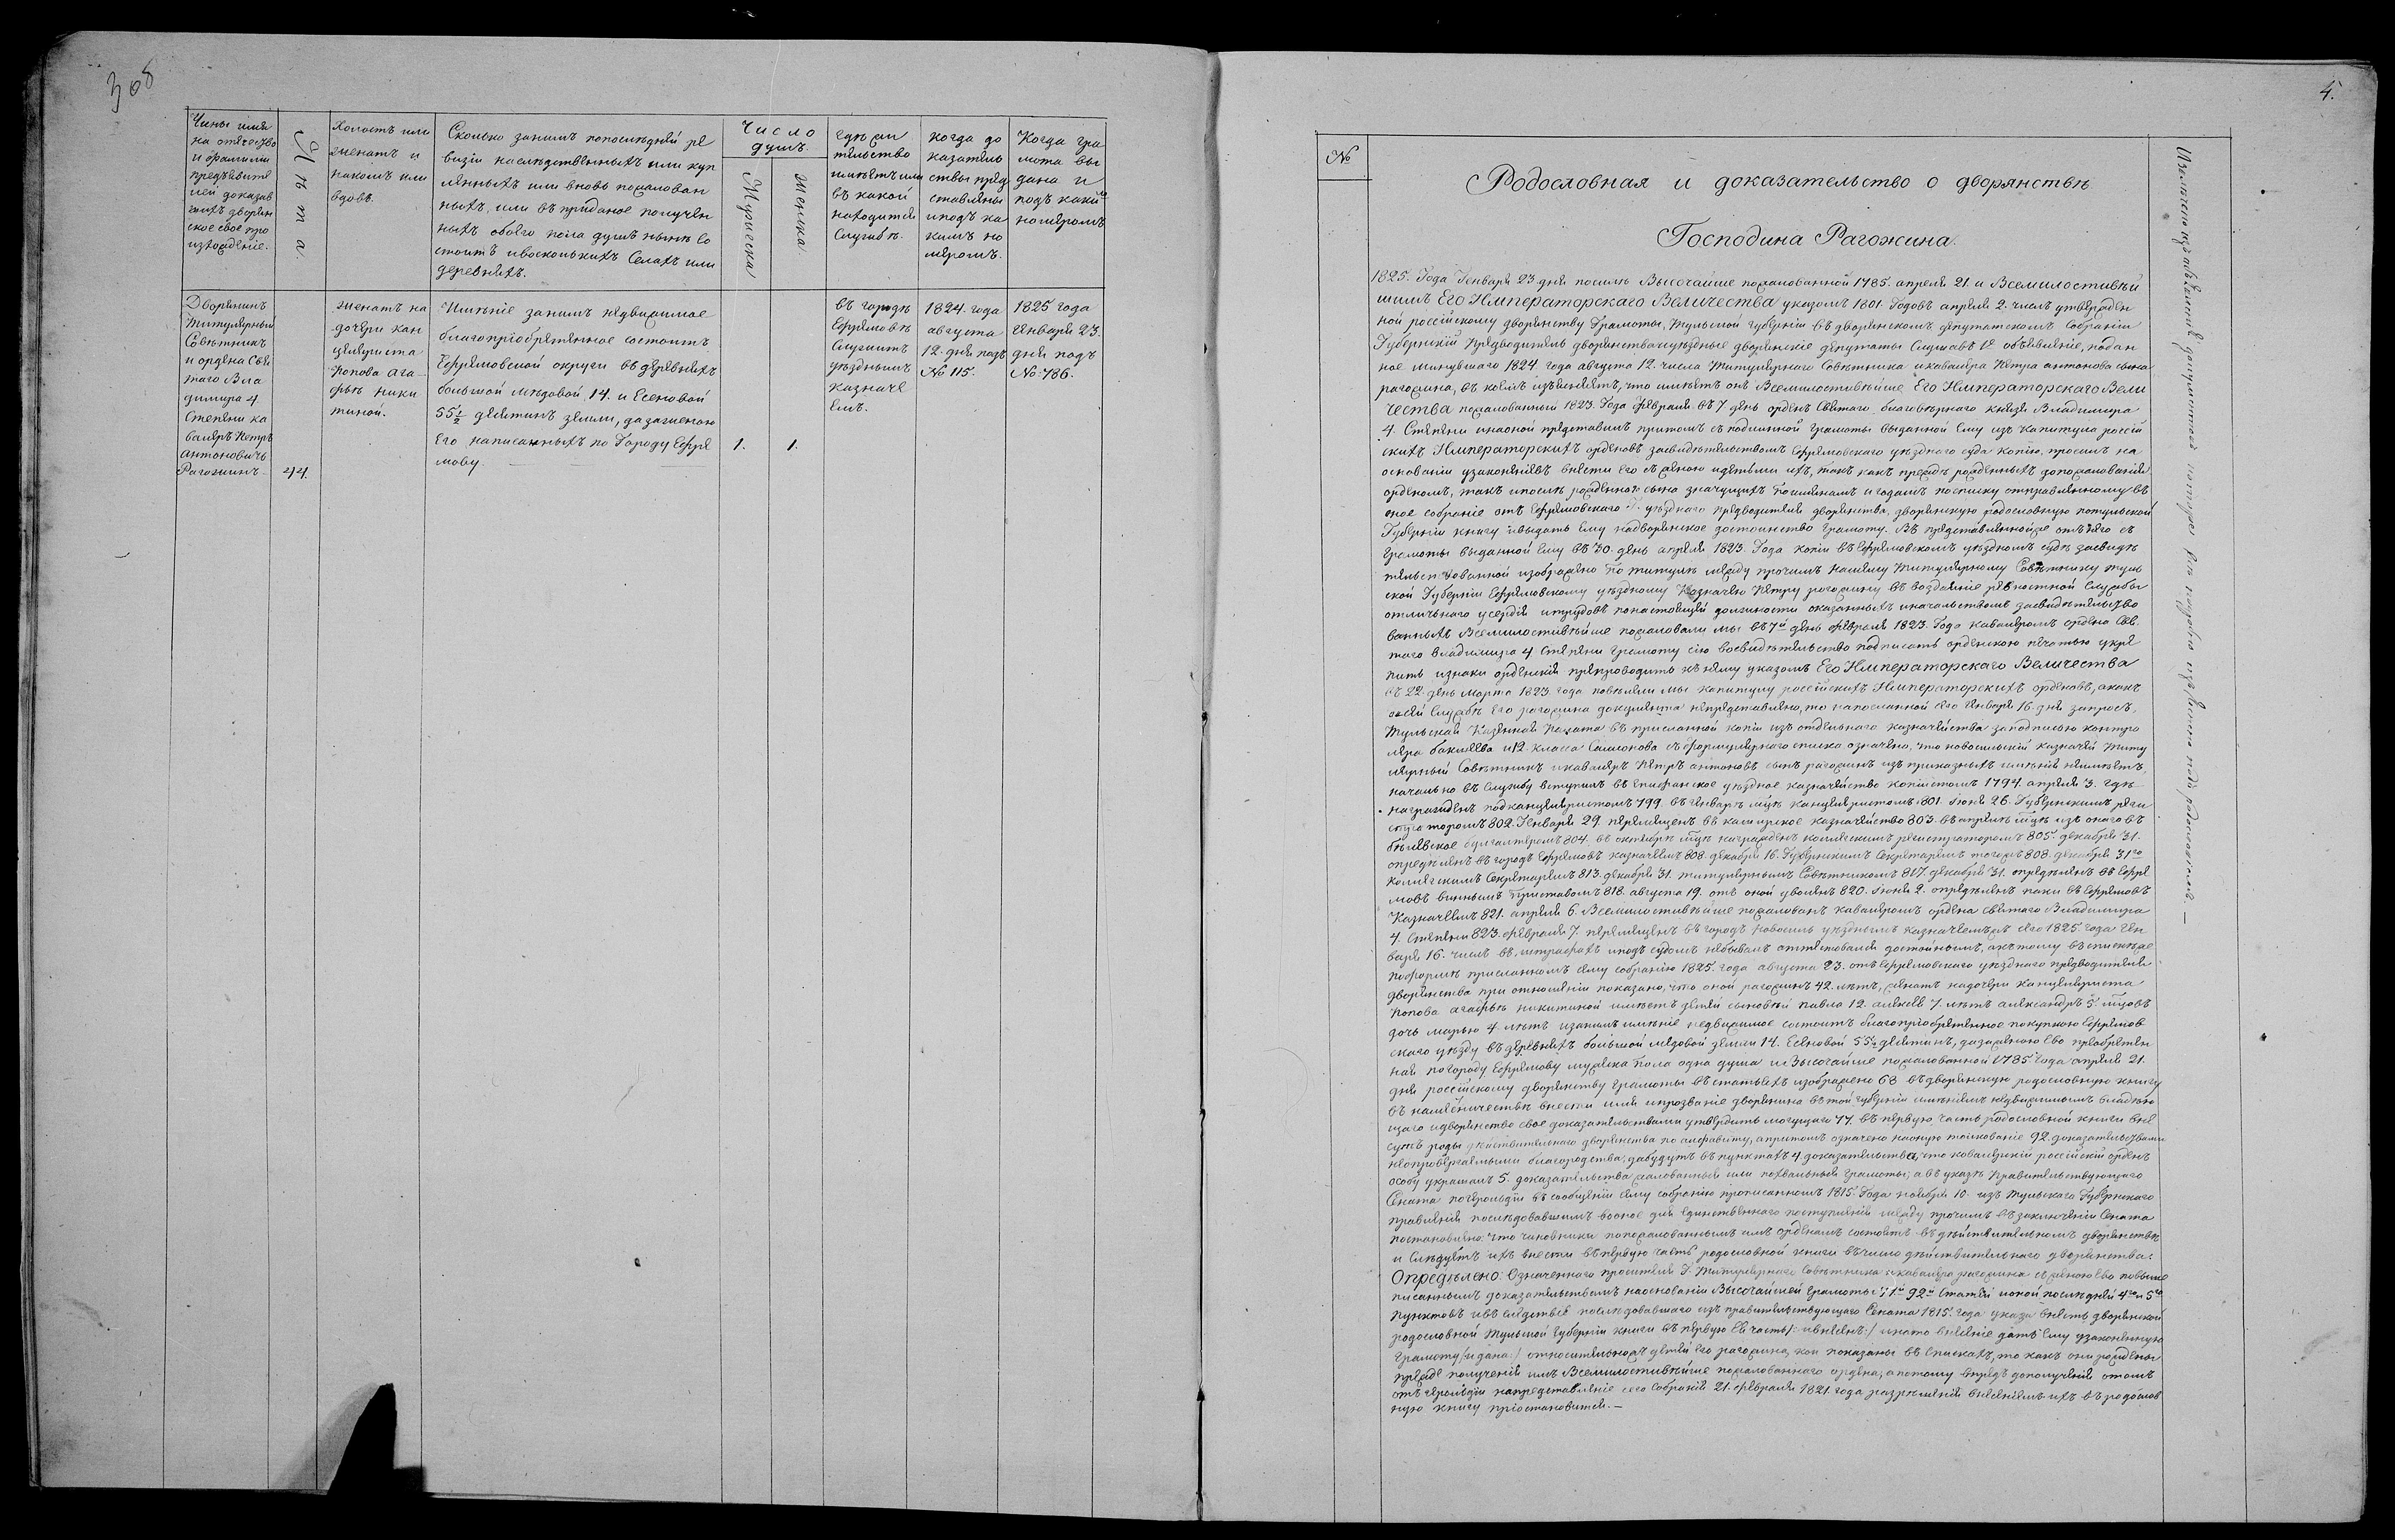 308
Чины имя
на отечество
и фамилии
предъявите
лей доказав
шихъ дворян
ское свое про
изхожденіе.
Лѣта.
Холостъ или
женатъ и
накомъ или
вдовъ.
Сколько занимъ попослѣдней ре
визіи наслѣдственныхъ или куп
ленныхъ или вновь пожалован
ныхъ, или въ приданое получен
ныхъ обоего пола душъ нынѣ со
стоитъ ивосколькихъ Селахъ или
деревняхъ.
Число
душъ.
Мужеска
Женска.
гдѣ жи
тельство
имѣетъ или
въ какой
находится
Службѣ.
когда до
казатель
ствы пред
ставлены
иподъ ка
кимъ но
меромъ.
Когда гра
мота вы
дана и
подъ какимъ
номеромъ
Дворянинъ
Титулярный
Совѣтникъ
и ордена Свя
таго Вла
димира 4
Степени ка
валеръ Петръ
Антоновичь
Рагожинъ
44.
женатъ на
дочери кан
целяриста
Попова Ага
фьѣ Ники
тиной.
Имѣніе занимъ недвижимое
благопріобрѣтенное состоитъ
Ефремовской округи въ деревняхъ
большой Медовой, 14. и Есеновой
55½ десятинъ земли, да заженою
Его написанныхъ по Городу Ефре
мову.
1.
1.
въ городѣ
Ефремовѣ
Служитъ
уѣзднымъ
казначе
емъ.
1824. года
августа
12. дня подъ
№ 115.
1825 года
Января 23.
дня подъ
№ 786.
4.
№
Родословная и доказательство о дворянствѣ
Господина Рагожина.
1825. Года Генваря 23 дня посилѣ Высочайше пожалованной 1785. апреля 21. и Всемилостивѣй
шимъ Его Императорскаго Величества указомъ 1801. Годовъ апреля 2. числъ утвержден
ной россійскому дворянству Грамоты, Тульской губерніи въ дворянскомъ депутатскомъ Собраніи
Губернскій Предводитель дворянства иуѣздные дворянскіе депутаты Слушавъ объявленіе, подан
ное минувшаго 1824 года августа 12. числа Титулярнаго Совѣтника икавалера Петра антонова сына
рагожина, въ коемъ изъясняетъ, что имѣетъ онъ Всемилостивѣйше Его Императорскаго Вели
чества пожалованный 1823. Года февраля въ 7 день орденъ Святаго благовѣрнаго князя Владимира
4. Степени инаоной представилъ притомъ съ подлинной грамоты выданной Ему изъ Капитула россій
скихъ Императорскихъ орденовъ засвидѣтельствомъ Ефремовскаго уѣзднаго суда копію, просилъ на
основаніи узаконеніевъ внести Его съ женою идѣтьми ихъ, такъ какъ прежде рожденныхъ допожалованія
орденомъ, такъ ипослѣ рожденнаго сына значущихъ поименамъ игодамъ посписку отправленному въ
оное собраніе отъ Ефремовскаго Г. уѣзднаго предводителя дворянства, дворянскую родословную потульской
Губерніи книгу ивыдать Ему надворянское достоинство грамоту. Въ представленной же отъ Него съ
грамоты выданной Ему въ 30. день апреля 1823. Года копіи въ Ефремовскомъ уѣздномъ судѣ засвидѣ
тельствованной изображено по титулѣ между прочимъ нашему Титулярному Совѣтнику туль
ской Губерніи Ефремовскому уѣздному Казначею Петру рагожину въ воздаяніе ревностной Службы
отличнаго усердія итрудовъ понастоящей должности оказанныхъ иначальствомъ засвидѣтельство
ванныхъ Всемилостивѣйше пожаловали мы въ 7й день февраля 1823. Года кавалеромъ ордена Свя
таго Владимира 4 степени грамоту сію восвидѣтельство подписать орденскою печатью укре
пить изнаки орденскія препроводить къ нему указомъ Его Императорскаго Величества
въ 22. день марта 1823 года повелѣли мы капитулу россійскихъ Императорскихъ орденовъ, акакъ
освей Службѣ Его рагожина документа непредставлено, то напосланной сего Января 16. дня запросъ,
Тульская Казенная Палата въ присланной копіи изъ отдѣльнаго казначейства заподписью контро
лера баклѣева и12. класса Салионова съ формулярнаго списка означено, что новосильскій казначей титу
лярный Совѣтникъ икавалеръ Петръ антоновъ сынъ рагожинъ изъ приказныхъ имѣнія неимѣетъ,
начально въ службу вступилъ въ Епифанское уѣздное казначейство копіистомъ 1794. апреля 3. гдѣ
награжденъ подканцеляристомъ 799. въ Январѣ мцѣ канцеляристомъ 801. Іюня 26. Губернскимъ реги
страторомъ 802. Генваря 29. перемещенъ въ каширское казначейство 803. въ апрелѣ мцѣ изъ онаго въ
бѣлевское бухгалтеромъ 804. въ октябрѣ мцѣ награжденъ колежскимъ регистраторомъ 805. декабря 31.
определенъ въ городъ Ефремовъ казначеемъ 808. декабря 16. Губернскимъ Секретаремъ тогожъ 808. декабря 31го
колежскимъ Секретаремъ 813. декабря 31. титулярнымъ Совѣтникомъ 817. декабря 31. определенъ въ Ефре
мовъ виннымъ Приставомъ 818. августа 19. отъ оной уволенъ 820. Іюня 2. опредѣленъ паки въ Ефремовъ
Казначеемъ 821. апреля 6. Всемилостивѣйше пожалованъ кавалеромъ ордена святаго Владимира
4. степени 823. февраля 7. перемещенъ въ городъ Новосиль уѣзднымъ казначеемъжъ сего 1825. года Ген
варя 16. числъ въ штрафахъ иподъ судомъ небывалъ аттестовался достойнымъ, акътому въ спискѣ же
поформѣ присланномъ сему собранію 1825. года августа 23. отъ Ефремовскаго уѣзднаго предводителя
дворянства при отношеніи показано, что оной рагожинъ 42. лѣтъ, женатъ надочери Канцеляриста
Попова агафьѣ никитиной имѣетъ дѣтей сыновей павла 12. алексѣя 7. лѣтъ александръ 5. мцовъ
дочь марью 4. лѣтъ изанимъ имѣніе недвижимое состоитъ благопріобрѣтенное покупкою Ефремов
скаго уѣзду въ деревняхъ большой Медовой земли 14. Есеновой 55½ десятинъ, дазаженою Ево пріобретен
ная погороду Ефремову мужеска пола одна душа и Высочайше пожалованной 1785 Года апреля 21.
дня россійскому дворянству Грамоты въ статьяхъ изображено 68 въ дворянскую родословную книгу
въ намѣстничествѣ внести имя ипрозваніе дворянина въ той губерніи имѣніемъ недвижимымъ владѣю
щаго идворянство свое доказательствами утвердить могущаго 77. въ первую часть родословной книги вне
сутъ роды дѣйствительнаго дворянства по алфавиту, апритомъ означено наоную толкованіе 92. доказательствами
неопровергаемыми благородства, дабудутъ въ пунктахъ 4. доказательства, что кавалерскій россійскій орденъ
особу украшалъ 5. доказательства жалованныя или похвальныя грамоты; авъ указѣ Правительствующаго
Сената погерольдіи въ сообщеніи сему собранію прописанномъ 1815. Года ноября 10. изъ тульскаго Губернскаго
правленія послѣдовавшимъ вооное для Единственнаго поступленія между прочимъ въ заключеніи Сената
постановлено: что чиновники попожалованнымъ имъ орденамъ состоятъ въ дѣйствительномъ дворянствѣ
и Слѣдуетъ ихъ внести въ первую часть родословной книги въ число дѣйствительнаго дворянства:
Опредѣлено: Означеннаго просителя Г. Титулярнаго Совѣтника икавалера рагожина съ женою Ево повыше
писаннымъ доказательствамъ наоснованіи Высочайшей Грамоты 92й Статьи ионой послѣдней 4го и 5го
пунктовъ ивъ слѣдствіе послѣдовавшаго изъ правительствующаго Сената 1815. года указа внесть дворянской
родословной Тульской Губерніи книги въ первую Ея часть /: ивнесенъ :/ инато внесеніе дать Ему узаконенную
грамоту /: идана :/ относительножъ дѣтей Его рагожина, кои показаны въ спискахъ, то какъ они рождены
прежде полученія имъ Всемилостивѣйше пожалованнаго ордена, апотому впредь дополученія отомъ
отъ герольдіи напредставленіе сего собранія 21. февраля 1821. года разрешенія внесеніемъ ихъ въ родослов
ную книгу пріостановится.